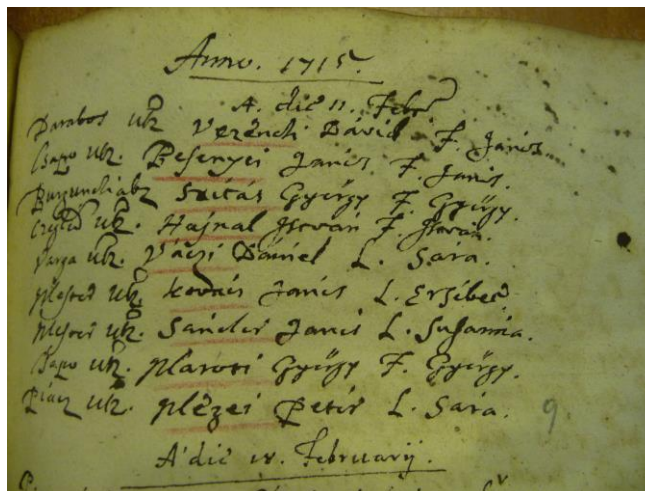 Anno. 1715.
A. die 11. Febr
Darabos utz Verench Dávid F. János
Csapo utz. Besenyei János F. János.
Burgundia utz Szitás György F. György.
Czegléd utz. Hajnal Istvan F. Istvan.
Varga utz. Váczi Dániel L. Sara.
Mester utz. kovács János L. Ersébeth
Mester utz. Sándor János L. Susanna.
Csapo utz. Maroti György F. György.
Piacz utz. Mézei Petér L. Sara. 9
A die 18. Februarij.